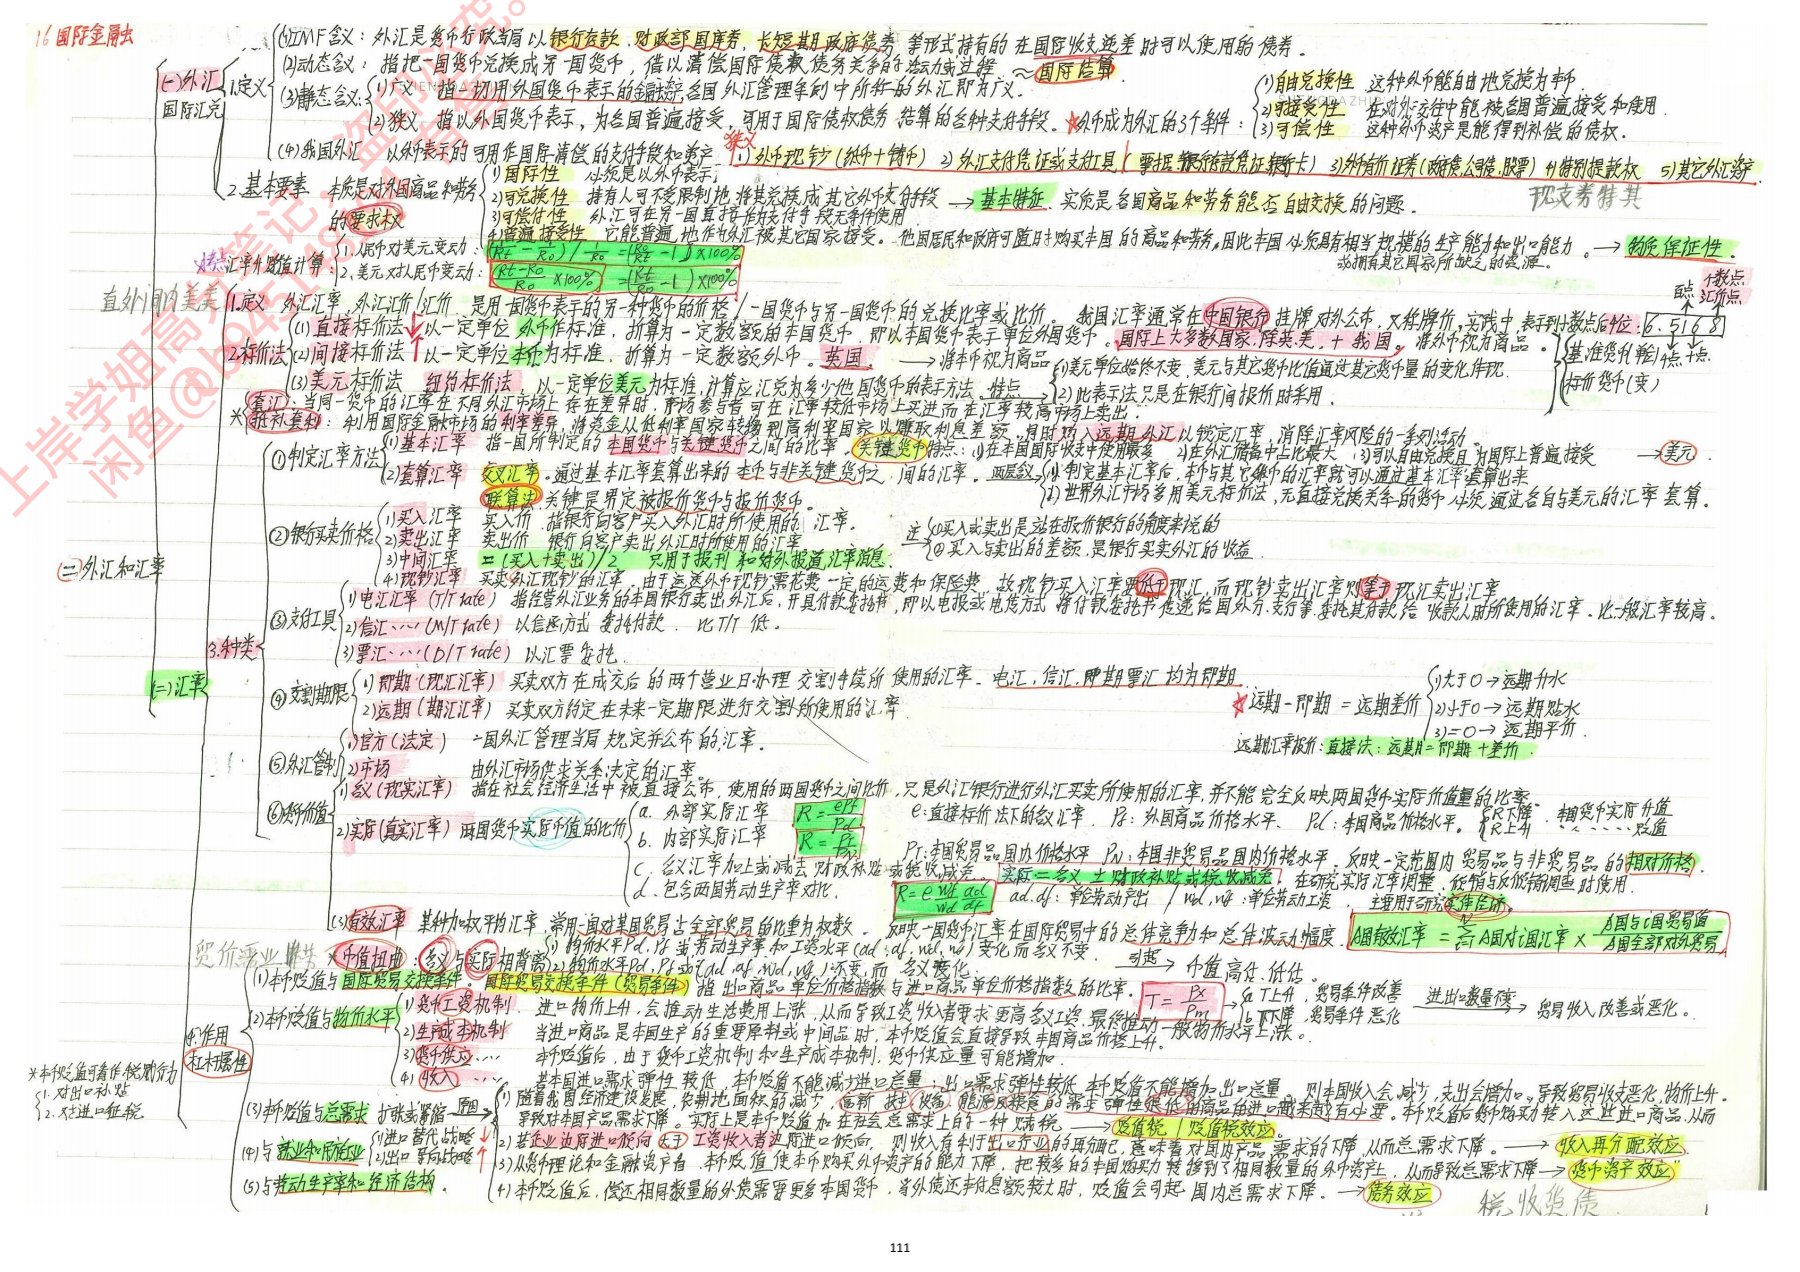 16 国际金融
(一)外汇
国际汇兑
1.定义
(1)IMF含义：外汇是货币行政当局以银行存款、财政部国库券、长短期政府债券等形式持有的在国际收支逆差时可以使用的债券。
(2)动态含义：指把一国货币兑换成另一国货币，借以清偿国际债权债务关系的活动或过程 ≈ 国际结算.
(3)静态含义：
1)广义 指一切用外国货币表示的金融资产，各国外汇管理条例中所称的外汇即为广义.
2)狭义 指以外国货币表示，为各国普遍接受，可用于国际债权债务结算的各种支付手段。
★外币成为外汇的3个条件：
(1)自由兑换性 这种外币能自由地兑换为本币
(2)可接受性 在对外交往中能被各国普遍接受和使用
(3)可偿性 这种外币资产是能得到补偿的债权.
(4)我国外汇 以外币表示的可用作国际清偿的支付手段和资产
狭义
1)外币现钞(纸币+铸币) 2)外汇支付凭证或支付工具(票据、银行存款凭证、银行卡) 3)外币有价证券(政府债、公司债、股票) 4)特别提款权 5)其它外汇资产
现支券特其
2.基本要素 本质是对外国商品和劳务的要求权
1)国际性 必须是以外币表示；
2)可兑换性 持有人可不受限制地将其兑换成其它外币支付手段 → 基本特征. 实质是各国商品和劳务能否自由交换的问题.
3)可偿付性 外汇可在另一国直接作为支付手段无条件使用
4)普遍接受性 它能普遍地作为外汇被其它国家接受。他国居民和政府可随时购买本国的商品和劳务，因此本国必须具有相当规模的生产能力和出口能力。 → 物质保证性.
或拥有其它国家所缺乏的资源.
考点 汇率升贬值计算：
1.人民币对美元变动：(1/Rt − 1/R0) / 1/R0 = (R0/Rt − 1) × 100%
2.美元对人民币变动：(Rt−R0)/R0 × 100% = (Rt/R0 − 1) × 100%
直外间内美美
(二)外汇和汇率
(二)汇率
1.定义 外汇汇率、外汇汇价/汇价 是用一国货币表示的另一种货币的价格/一国货币与另一国货币的兑换比率或比价. 我国汇率通常在中国银行挂牌对外公布，又称牌价，实践中，表示到小数点后4位：6.5168
百点 个数点 汇价点
千点 十点
2.标价法
(1)直接标价法 以一定单位外币作标准，折算为一定数额的本国货币，即以本国货币表示单位外国货币. 国际上大多数国家，除英、美，+我国. 将外币视为商品.
(2)间接标价法 以一定单位本币为标准，折算为一定数额外币. 英国 → 将本币视为商品
(3)美元标价法 纽约标价法 以一定单位美元为标准，计算应汇兑为多少他国货币的表示方法. 特点
(1)美元单位始终不变，美元与其它货币比值通过其它货币量的变化体现.
(2)此表示法只是在银行间报价时采用.
基准货币(单位)
标价货币(变)
套汇：当同一货币的汇率在不同外汇市场上存在差异时，市场参与者可在汇率较低市场上买进而在汇率较高市场上卖出；
※抵补套利：利用国际金融市场的利率差异，将资金从低利率国家转移到高利率国家以赚取利息差额，同时购入远期外汇以锁定汇率，消除汇率风险的一系列活动.
3.种类
①制定汇率方法
(1)基本汇率 指一国所制定的本国货币与关键货币之间的比率. 关键货币特点：(1)在本国国际收支中使用最多 (2)在外汇储备中占比最大 (3)可以自由兑换且为国际上普遍接受 → 美元.
(2)套算汇率 交叉汇率. 通过基本汇率套算出来的本币与非关键货币之间的汇率. 两层含义
(1)制定基本汇率后，本币与其它外币的汇率就可以通过基本汇率套算出来
(2)世界外汇市场多用美元标价法，无直接兑换关系的货币必须通过各自与美元的汇率套算.
联算法 关键是界定被报价货币与报价货币.
②银行买卖价格
1)买入汇率 买入价 指银行向客户买入外汇时所使用的汇率.
2)卖出汇率 卖出价 银行向客户卖出外汇时所使用的汇率
3)中间汇率 =(买入+卖出)/2 只用于报刊和对外报道汇率消息.
注 ①买入或卖出是站在报价银行的角度来说的
②买入与卖出的差额，是银行买卖外汇的收益.
(4)现钞汇率 买卖外汇现钞的汇率. 由于运送外币现钞需花费一定的运费和保险费，故现钞买入汇率要低于现汇，而现钞卖出汇率则等于现汇卖出汇率
③支付工具
1)电汇汇率(T/T rate) 指经营外汇业务的本国银行卖出外汇后，开具付款委托书，即以电报或电传方式将付款委托书传递给国外分、支行等，委托其付款给收款人时所使用的汇率. 比一般汇率较高.
2)信汇……(M/T rate) 以信函方式委托付款. 比T/T低.
3)票汇……(D/T rate) 以汇票委托.
④交割期限
1)即期(现汇汇率) 买卖双方在成交后的两个营业日办理交割手续所使用的汇率. 电汇、信汇、即期票汇均为即期.
2)远期(期汇汇率) 买卖双方约定在未来一定期限进行交割所使用的汇率
★远期−即期=远期差价
1)大于0→远期升水
2)小于0→远期贴水
3)=0→远期平价.
远期汇率报价：直接法：远期=即期+差价
⑤外汇管制
1)官方(法定) 一国外汇管理当局规定并公布的汇率.
2)市场 由外汇市场供求关系决定的汇率.
⑥货币价值
1)名义(现实汇率) 指在社会经济生活中被直接公布，使用的两国货币之间比价，只是外汇银行进行外汇买卖所使用的汇率，并不能完全反映两国货币实际价值量的比率.
2)实际(真实汇率) 两国货币实际币值的比价
a. 外部实际汇率 R=ePf/Pd e:直接标价法下的名义汇率. Pf:外国商品价格水平. Pd:本国商品价格水平. R下降，本国货币实际升值 R上升 …… 贬值
b. 内部实际汇率 R=PT/PN PT:本国贸易品国内价格水平 PN:本国非贸易品国内价格水平. 反映一定范围内贸易品与非贸易品的相对价格.
c. 名义汇率加上或减去财政补贴或税收减免. 实际=名义±财政补贴或税收减免 在研究实际汇率调整、倾销与反倾销调查时使用.
d. 包含两国劳动生产率对比. R=e wf/wd ad/af ad.af:单位劳动产出 / wd,wf:单位劳动工资. 主要用于研究实体经济.
(3)有效汇率 某种加权平均汇率，常用一国对某国贸易占全部贸易的比重为权数. 反映一国货币汇率在国际贸易中的总体竞争力和总体波动幅度.
A国有效汇率=∑A国对i国汇率×A国与i国贸易值/A国全部对外贸易
※币值扭曲：名义与实际相背离
1)物价水平Pd、Pf或劳动生产率和工资水平(ad、af、wd、wf)变化而名义不变.
2)物价水平Pd、Pf或(ad、af、wd、wf)不变，而名义变化. 引起→ 币值高估、低估.
4.作用 杠杆属性
(1)本币贬值与国际贸易交换条件. 国际贸易交换条件(贸易条件) 指出口商品单位价格指数与进口商品单位价格指数的比率. T=Px/Pm
a.T上升，贸易条件改善
b.T下降，贸易条件恶化 进出口数量不变→ 贸易收入改善或恶化.
(2)本币贬值与物价水平
1)货币工资机制. 进口物价上升，会推动生活费用上涨，从而导致工资收入者要求更高名义工资，最终推动一般物价水平上涨.
2)生产成本机制 当进口商品是本国生产的重要原料或中间品时，本币贬值会直接导致本国商品价格上升.
3)货币供应… 本币贬值后，由于货币工资机制和生产成本机制，货币供应量可能增加.
4)收入…… 若本国进口需求弹性较低，本币贬值不能减少进口总量；出口需求弹性较低，本币贬值不能增加出口总量，则本国收入会减少，支出会增加，导致贸易收支恶化，物价上升.
(3)本币贬值与总需求 扩张或紧缩 原因
1)随着我国经济建设发展，农耕地面积的减少，高新技术设备、能源及粮食的需求弹性较低的商品的进口越来越有必要. 本币贬值后货币购买力转入这些进口商品，从而导致对本国产品需求下降. 实际上是本币贬值加在社会总需求上的一种赋税 → 贬值税/贬值税效应.
2)若企业边际进口倾向大于工资收入者边际进口倾向，则收入有利于出口行业的再分配，意味着对国内产品需求的下降，从而总需求下降. → 收入再分配效应.
3)从货币理论和金融资产看，本币贬值使本币购买外币资产的能力下降，把较多的本国购买力转移到了相同数量的外币资产上，从而导致总需求下降→ 货币资产效应
4)本币贬值后，偿还相同数量的外债需要更多本国货币，当外债还本付息额较大时，贬值会引起国内总需求下降. → 债务效应
税收货债
(4)与就业和产业 1)进口替代战略 2)出口导向战略
(5)与劳动生产率和经济结构.
※本币贬值可看作税赋行为
1. 对出口补贴
2. 对进口征税
上岸学姐高分笔记，盗印必究。
闲鱼@b045148
111